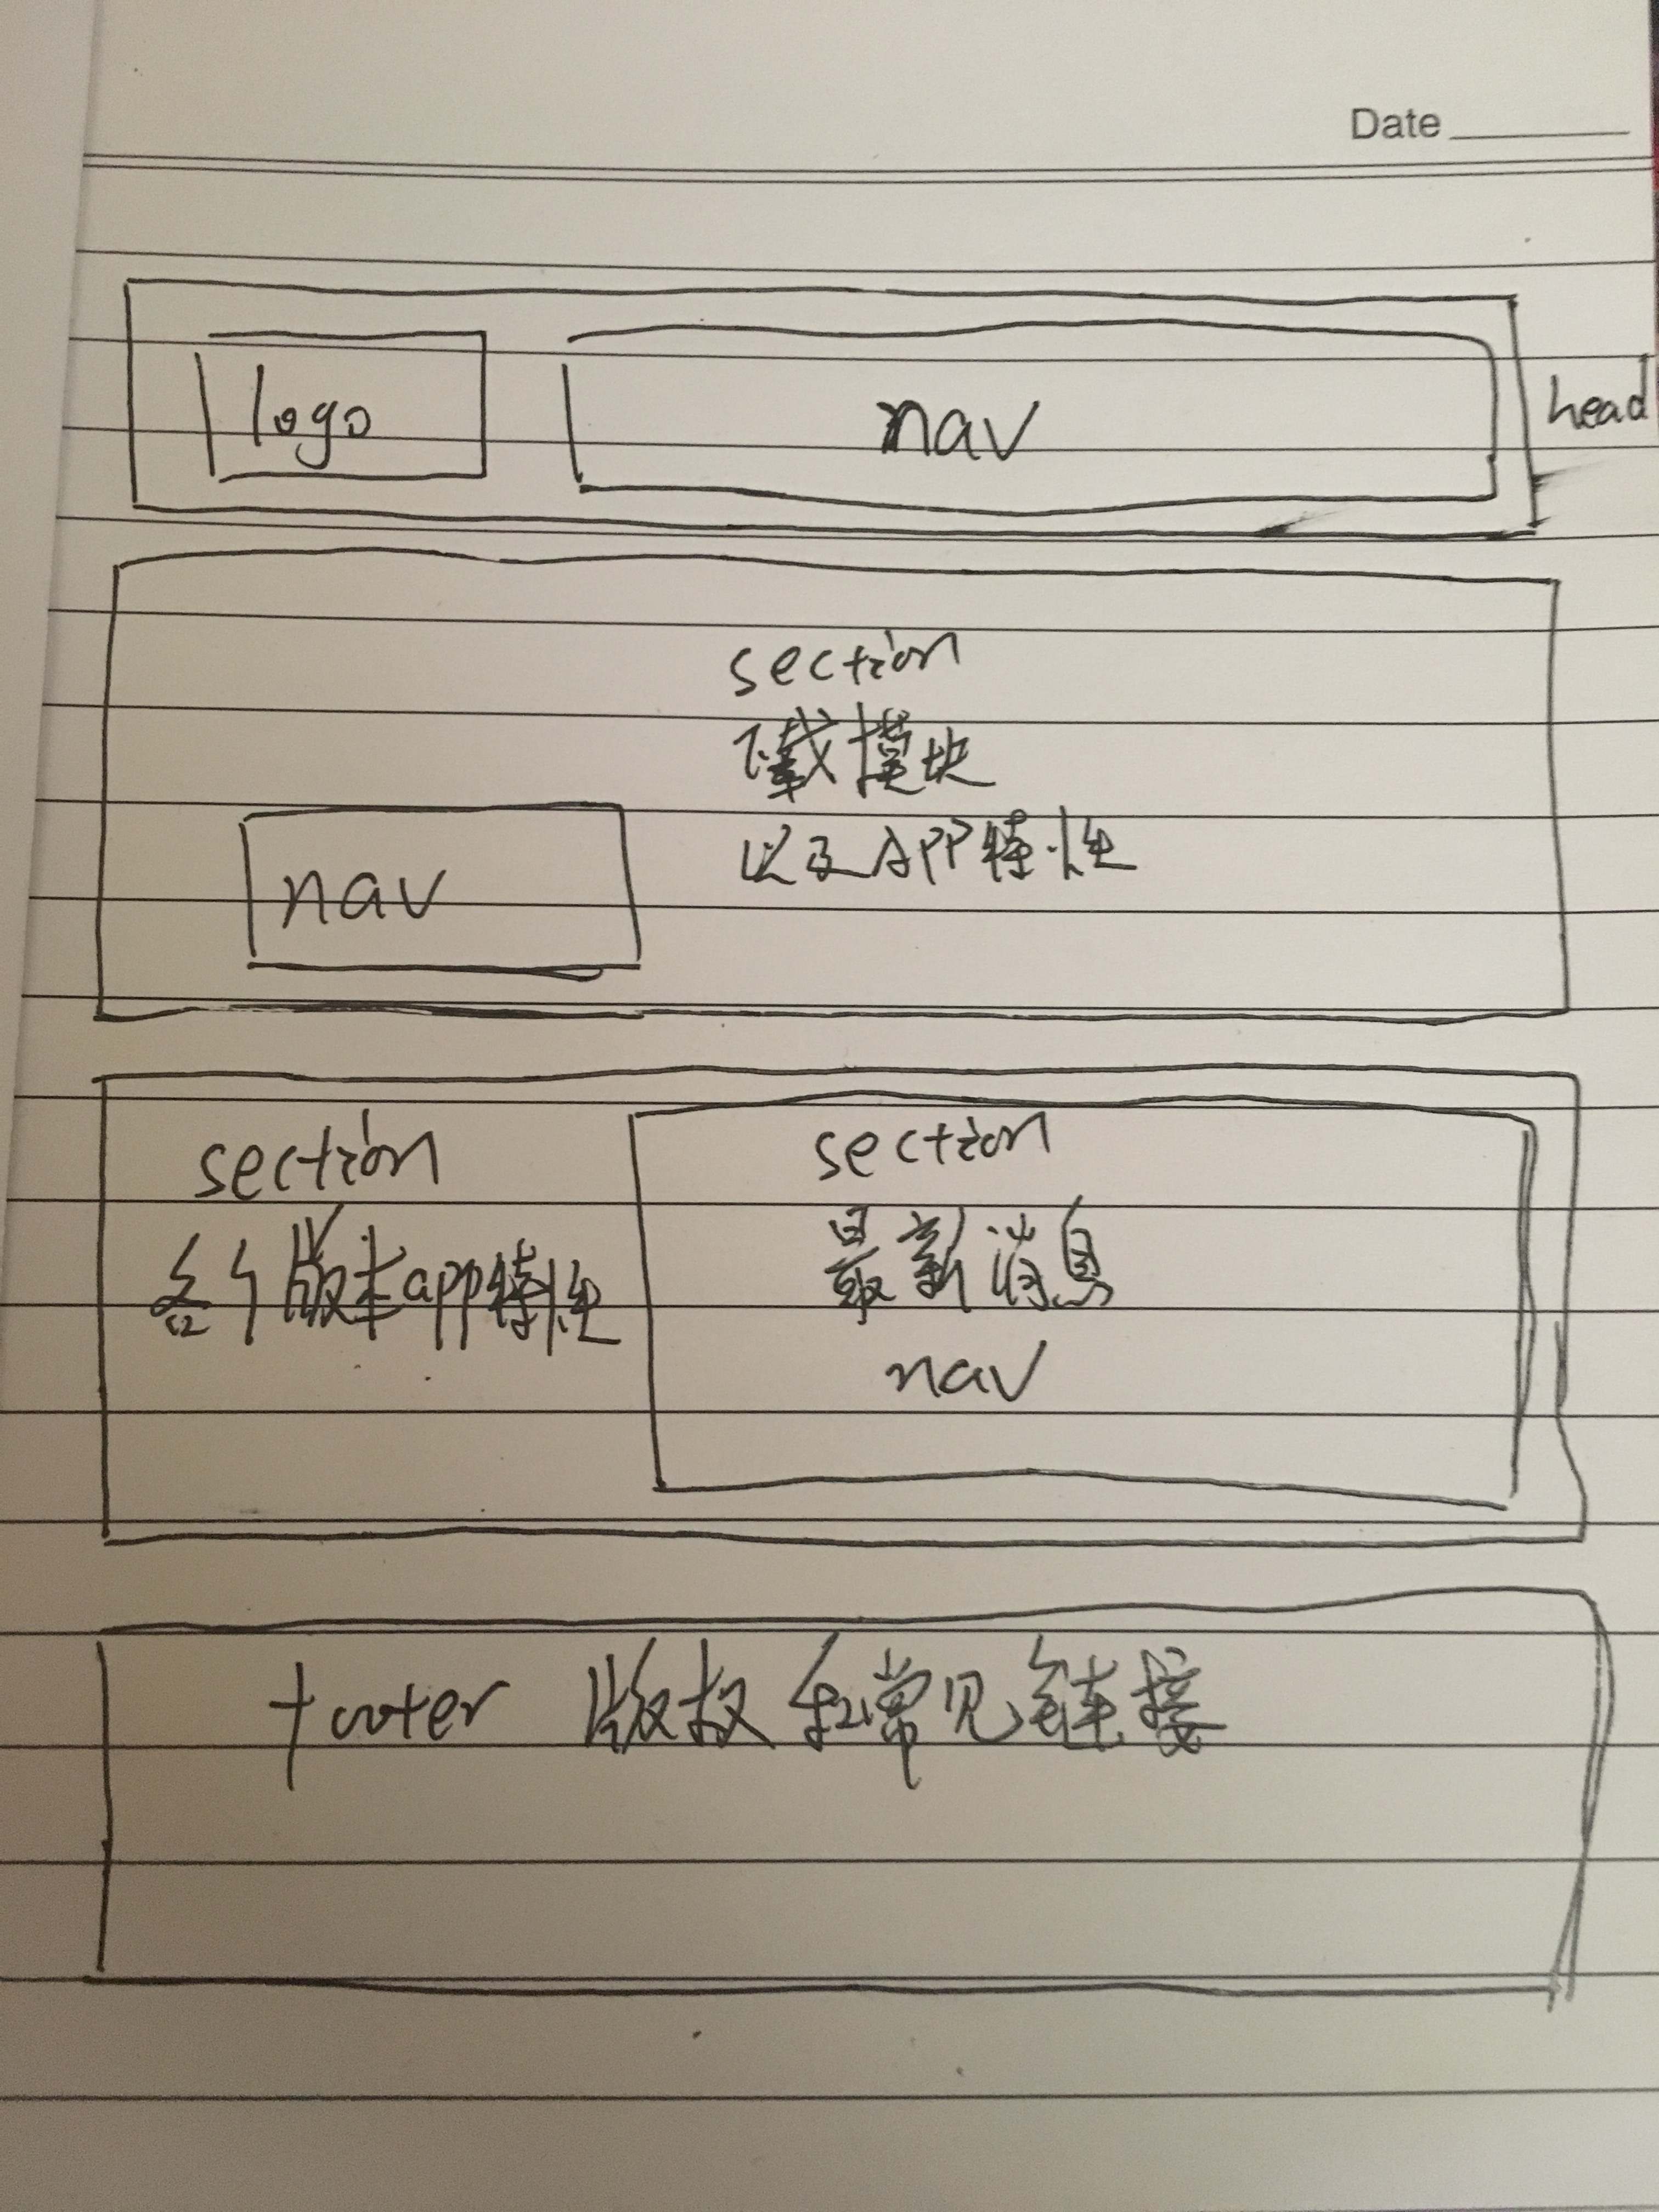 Date
logo
nav
head
section
下载模块
以及APP特性
nav
section
各个版本app特性
section
最新消息
nav
footer 版权和常见链接